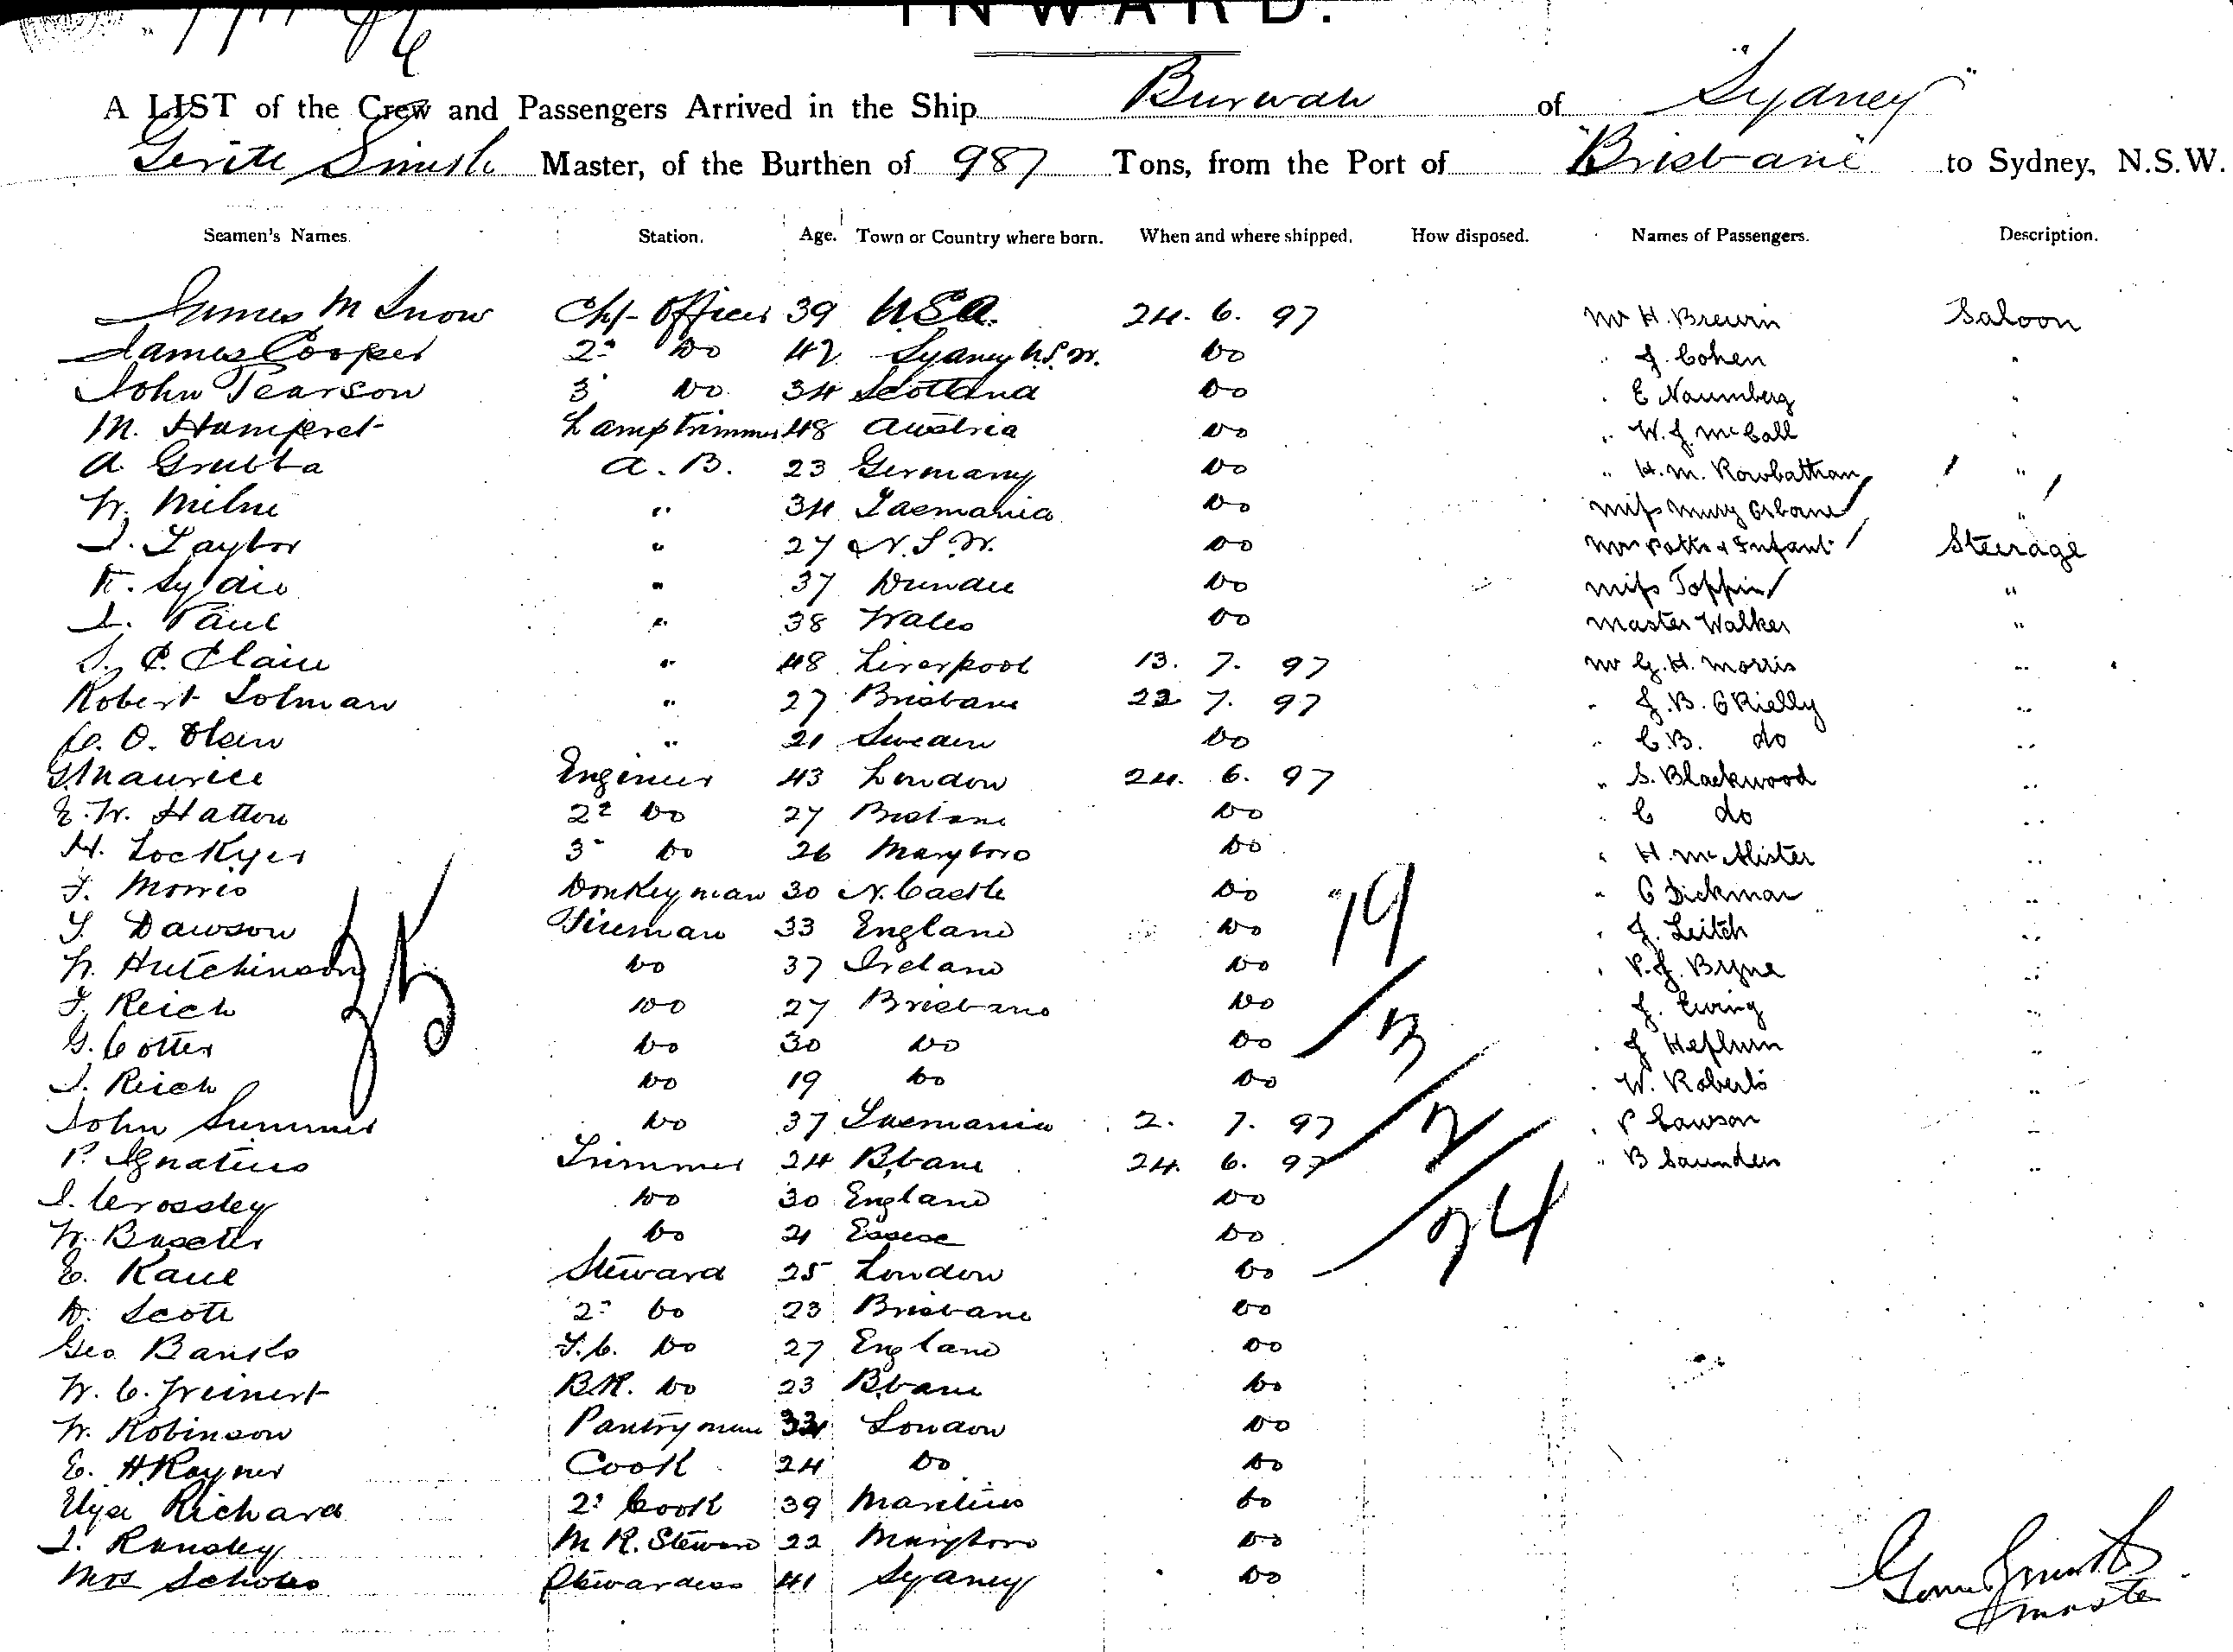 INWARD.
A LIST of the Crew and Passengers Arrived in the Ship Burwah of "Sydney"
Master, of the Burthen of 987 Tons, from the Port of "Brisbane" to Sydney, N.S.W.
Seamen's Names. Station. Age. Town or Country where born. When and where shipped. How disposed. Names of Passengers. Description.
James M Snow Chf- Officer 39 U.S.A. 24. 6. 97 Mr H. Brewin Saloon
James Cooper 2" Do 42 Sydney N.S.W. Do " J. Cohen "
John Pearson 3" Do 34 Scotland Do " E Naumberg "
M. Lamptrimmer 48 Austria Do " W. J. McCall "
A. Grubba A. B. 23 Germany Do " H. M. Rowbatham "
W. Milne " 34 Tasmania Do Miss Mary Osborne "
J. Taylor " 27 N.S.W. Do Mrs Potts & Infant Steerage
" 37 Dundee Do Miss Toppin "
J. Paul " 38 Wales Do Master Walker "
" 48 Liverpool 13. 7. 97 Mr G. H. Morris "
Robert Solman " 27 Brisbane 22 7. 97 " J. B. O'Rielly "
O. Olsen " 21 Sweden Do " C. B. do "
G. Maurice Engineer 43 London 24. 6. 97 " S. Blackwood "
E. W. Hatton 2d Do 27 Brisbane Do " C do "
H. Lockyer 3" Do 26 Maryboro Do " H. McAlister "
J. Morris Donkeyman 30 N. Castle Do " C Dickman "
T. Dawson Fireman 33 England Do " J. Leitch "
W. Hutchinson Do 37 Ireland Do " P. J. Byrne "
J. Reich Do 27 Brisbane Do " J. Ewing "
G. Cotter Do 30 Do Do " J Hepburn "
J. Reich Do 19 Do Do " W. Roberts "
John Summer Do 37 Tasmania 2. 7. 97 " P Lawson "
P. Ignatius Trimmer 24 B,bane 24. 6. 97 " B Saunders "
J. Crossley Do 30 England Do
W. Baxter Do 21 Essex Do
E. Kaue Steward 25 London Do
D. Scott 2" Do 23 Brisbane Do
Geo Banks F.C. Do 27 England Do
W. C. Weinert B.R. Do 23 B,bane Do
W. Robinson Pantryman London Do
E. H. Rayner Cook 24 Do Do
Richard 2" Cook 39 Do
J. Ransley M R. Steward 22 Maryboro Do
Mrs Scholes Stewardess 41 Sydney Do
35
19
13
2
24
Master